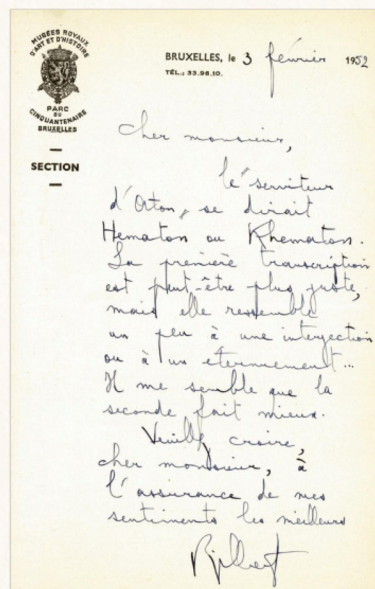 MUSÉES ROYAUX
D'ART ET D'HISTOIRE
PARC
DU
CINQUANTENAIRE
BRUXELLES
SECTION
BRUXELLES, le 3 février 1952
TÉL.: 33.96.10.
Cher monsieur,
le "serviteur
d'Aton" se dirait
Hematon ou Khematon.
La première transcription
est peut-être plus juste,
mais elle ressemble
un peu à une interjection
ou à un éternuement...
Il me semble que la
seconde fait mieux.
Veuillez croire,
cher monsieur, à
l'assurance de mes
sentiments les meilleurs